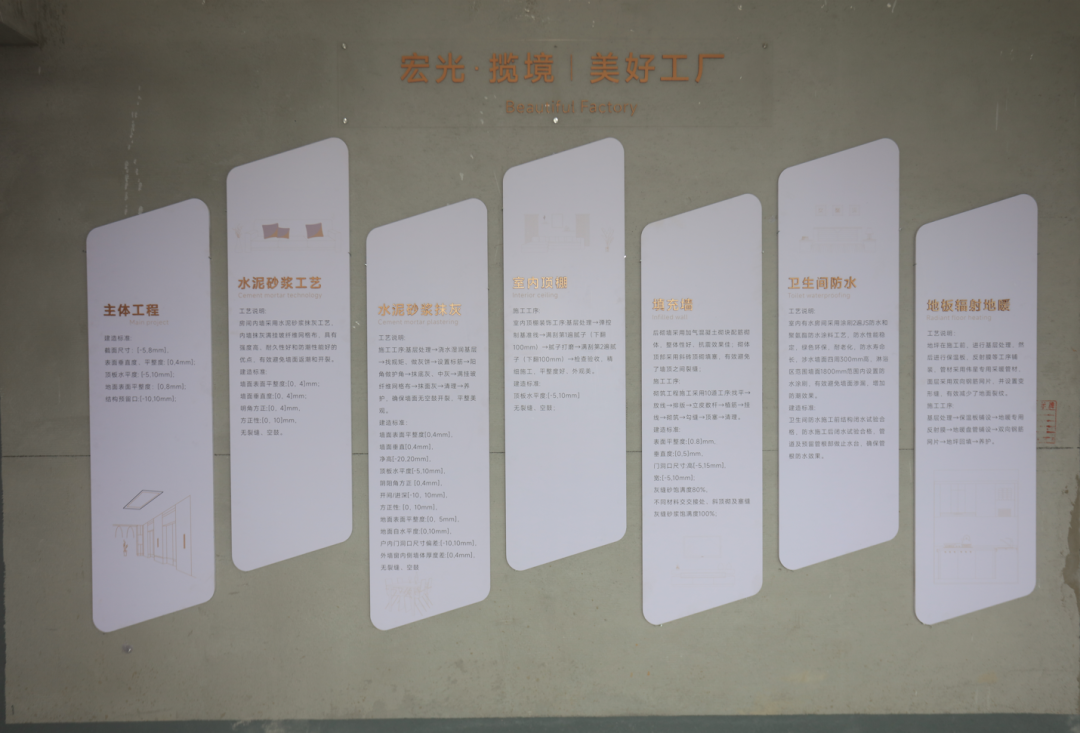 宏光·揽境 | 美好工厂
Beautiful Factory
主体工程
建造标准:
截面尺寸: [-5,8mm]、
表面垂直度、平整度: [0,4mm]、
顶板水平度: [-5,10mm]、
地面表面平整度: [0,8mm]、
结构预留口:[-10,10mm]。
水泥砂浆工艺
Cement mortar technology
工艺说明:
房间内墙采用水泥砂浆抹灰工艺,
内墙抹灰满挂玻纤维网格布, 具有
强度高、耐久性好和防潮性能好的
优点, 有效避免墙面返潮和开裂。
建造标准:
墙面表面平整度:[0, 4]mm;
墙面垂直度:[0, 4]mm;
阴角方正:[0, 4]mm,
方正性:[0, 10]mm,
无裂缝、空鼓。
水泥砂浆抹灰
Cement mortar plastering
工艺说明:
施工工序:基层处理→滴水湿润基层
纤维网格布→抹面灰→清理→养
护, 确保墙面无空鼓开裂, 平整美
观。
建造标准:
墙面表面平整度[0,4mm]、
墙面垂直[0,4mm]、
净高[-20,20mm]、
顶板水平度[-5,10mm]、
阴阳角方正 [0,4mm]、
开间/进深[-10, 10mm]、
方正性: [0, 10mm]、
地面表面平整度:[0, 5mm]、
地面自水平度:[0,10mm]、
户内门洞口尺寸偏差:[-10,10mm]、
外墙窗内侧墙体厚度差:[0,4mm]、
无裂缝、空鼓
室内顶棚
Interior ceiling
施工工序:
室内顶棚装饰工序:基层处理→弹控
制基准线→满刮第1遍腻子（下翻
100mm）→腻子打磨→满刮第2遍腻
子（下翻100mm）→检查验收, 精
细施工, 平整度好、外观美。
建造标准:
顶板水平度:[-5,10mm]
无裂缝、空鼓;
填充墙
Infilled wall
后砌墙采用加气混凝土砌块轻质砌
体, 整体性好、抗震效果佳。砌体
顶部采用斜砖顶砌填塞, 有效避免
了墙顶之间裂缝。
施工工序:
砌筑工程施工采用10道工序:找平→
放线→排版→立皮数杆→植筋→挂
线→砌筑→勾缝→顶塞→清理。
建造标准:
表面平整度:[0,8]mm、
垂直度:[0,5]mm、
门洞口尺寸:高[-5,15mm]、
宽:[-5,10mm]
灰缝砂浆饱满度80%、
不同材料交交接处、斜顶砌及塞缝
灰缝砂浆饱满度100%。
卫生间防水
Toilet waterproofing
工艺说明:
长, 涉水墙面四周300mm高、淋浴
区范围墙面1800mm范围内设置防
水涂料, 有效避免墙面渗漏, 增加
防潮效果。
建造标准:
卫生间防水施工前结构闭水试验合
格, 防水施工后闭水试验合格, 管
道及预留管根部做止水台, 确保管
根防水效果。
地板辐射地暖
Radiant floor heating
工艺说明:
地坪在施工前, 进行基层处理, 然
后进行保温板、反射膜等工序铺
装, 管材采用伟星专用采暖管材,
面层采用双向钢筋网片, 并设置变
形缝, 有效减少了地面裂纹。
施工工序:
基层处理→保温板铺设→地暖专用
反射膜→地暖盘管铺设→双向钢筋
网片→地坪回填→养护。